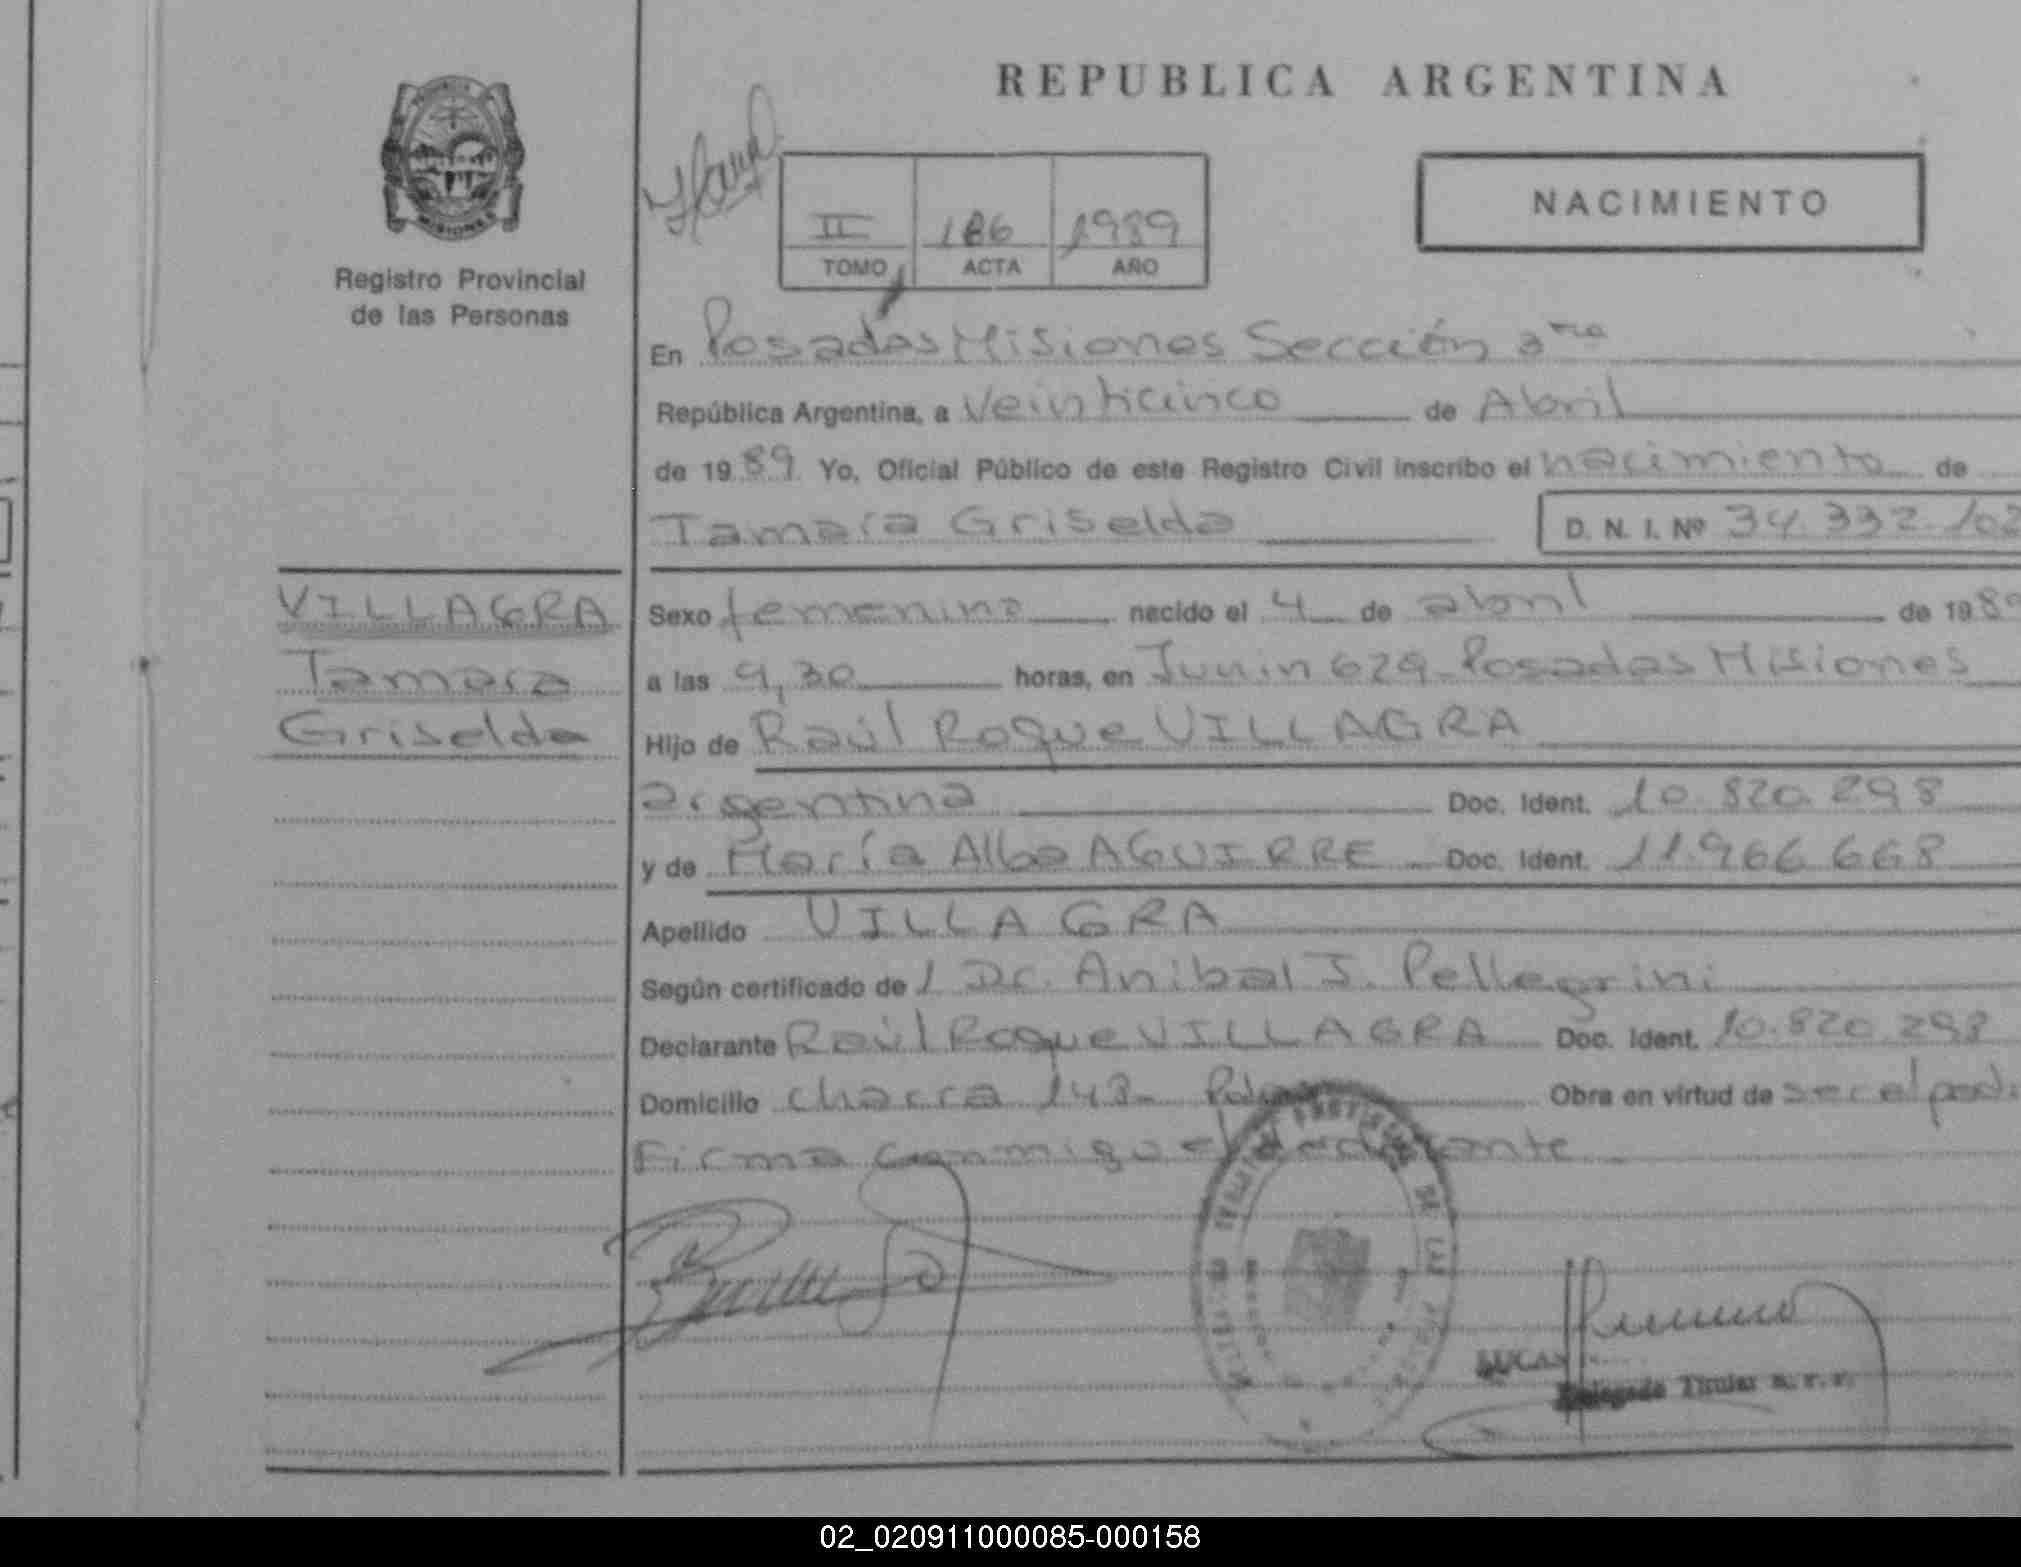 REPUBLICA ARGENTINA
MISIONES
Registro Provincial
de las Personas
II 186 1989
TOMO ACTA AÑO
NACIMIENTO
En Posadas Misiones Sección 3ra
República Argentina, a Veinticinco de Abril
de 1989 Yo, Oficial Público de este Registro Civil inscribo el nacimiento de
Tamara Griselda D. N. I. Nº 34.332.102
VILLAGRA
Tamara
Griselda
Sexo femenino nacido el 4 de abril de 1989
a las 9,30 horas, en Junin 629 Posadas Misiones
Hijo de Raúl Roque VILLAGRA
argentina Doc. Ident. 10.820.298
y de María Alba AGUIRRE Doc. Ident. 11.966.668
Apellido VILLAGRA
Según certificado de l Dr. Anibal J. Pellegrini
Declarante Raúl Roque VILLAGRA Doc. Ident. 10.820.298
Domicilio chacra 148 Obra en virtud de ser el pad.
Firma conmigo el declarante
LUCAS
Delegado Titular
02_020911000085-000158